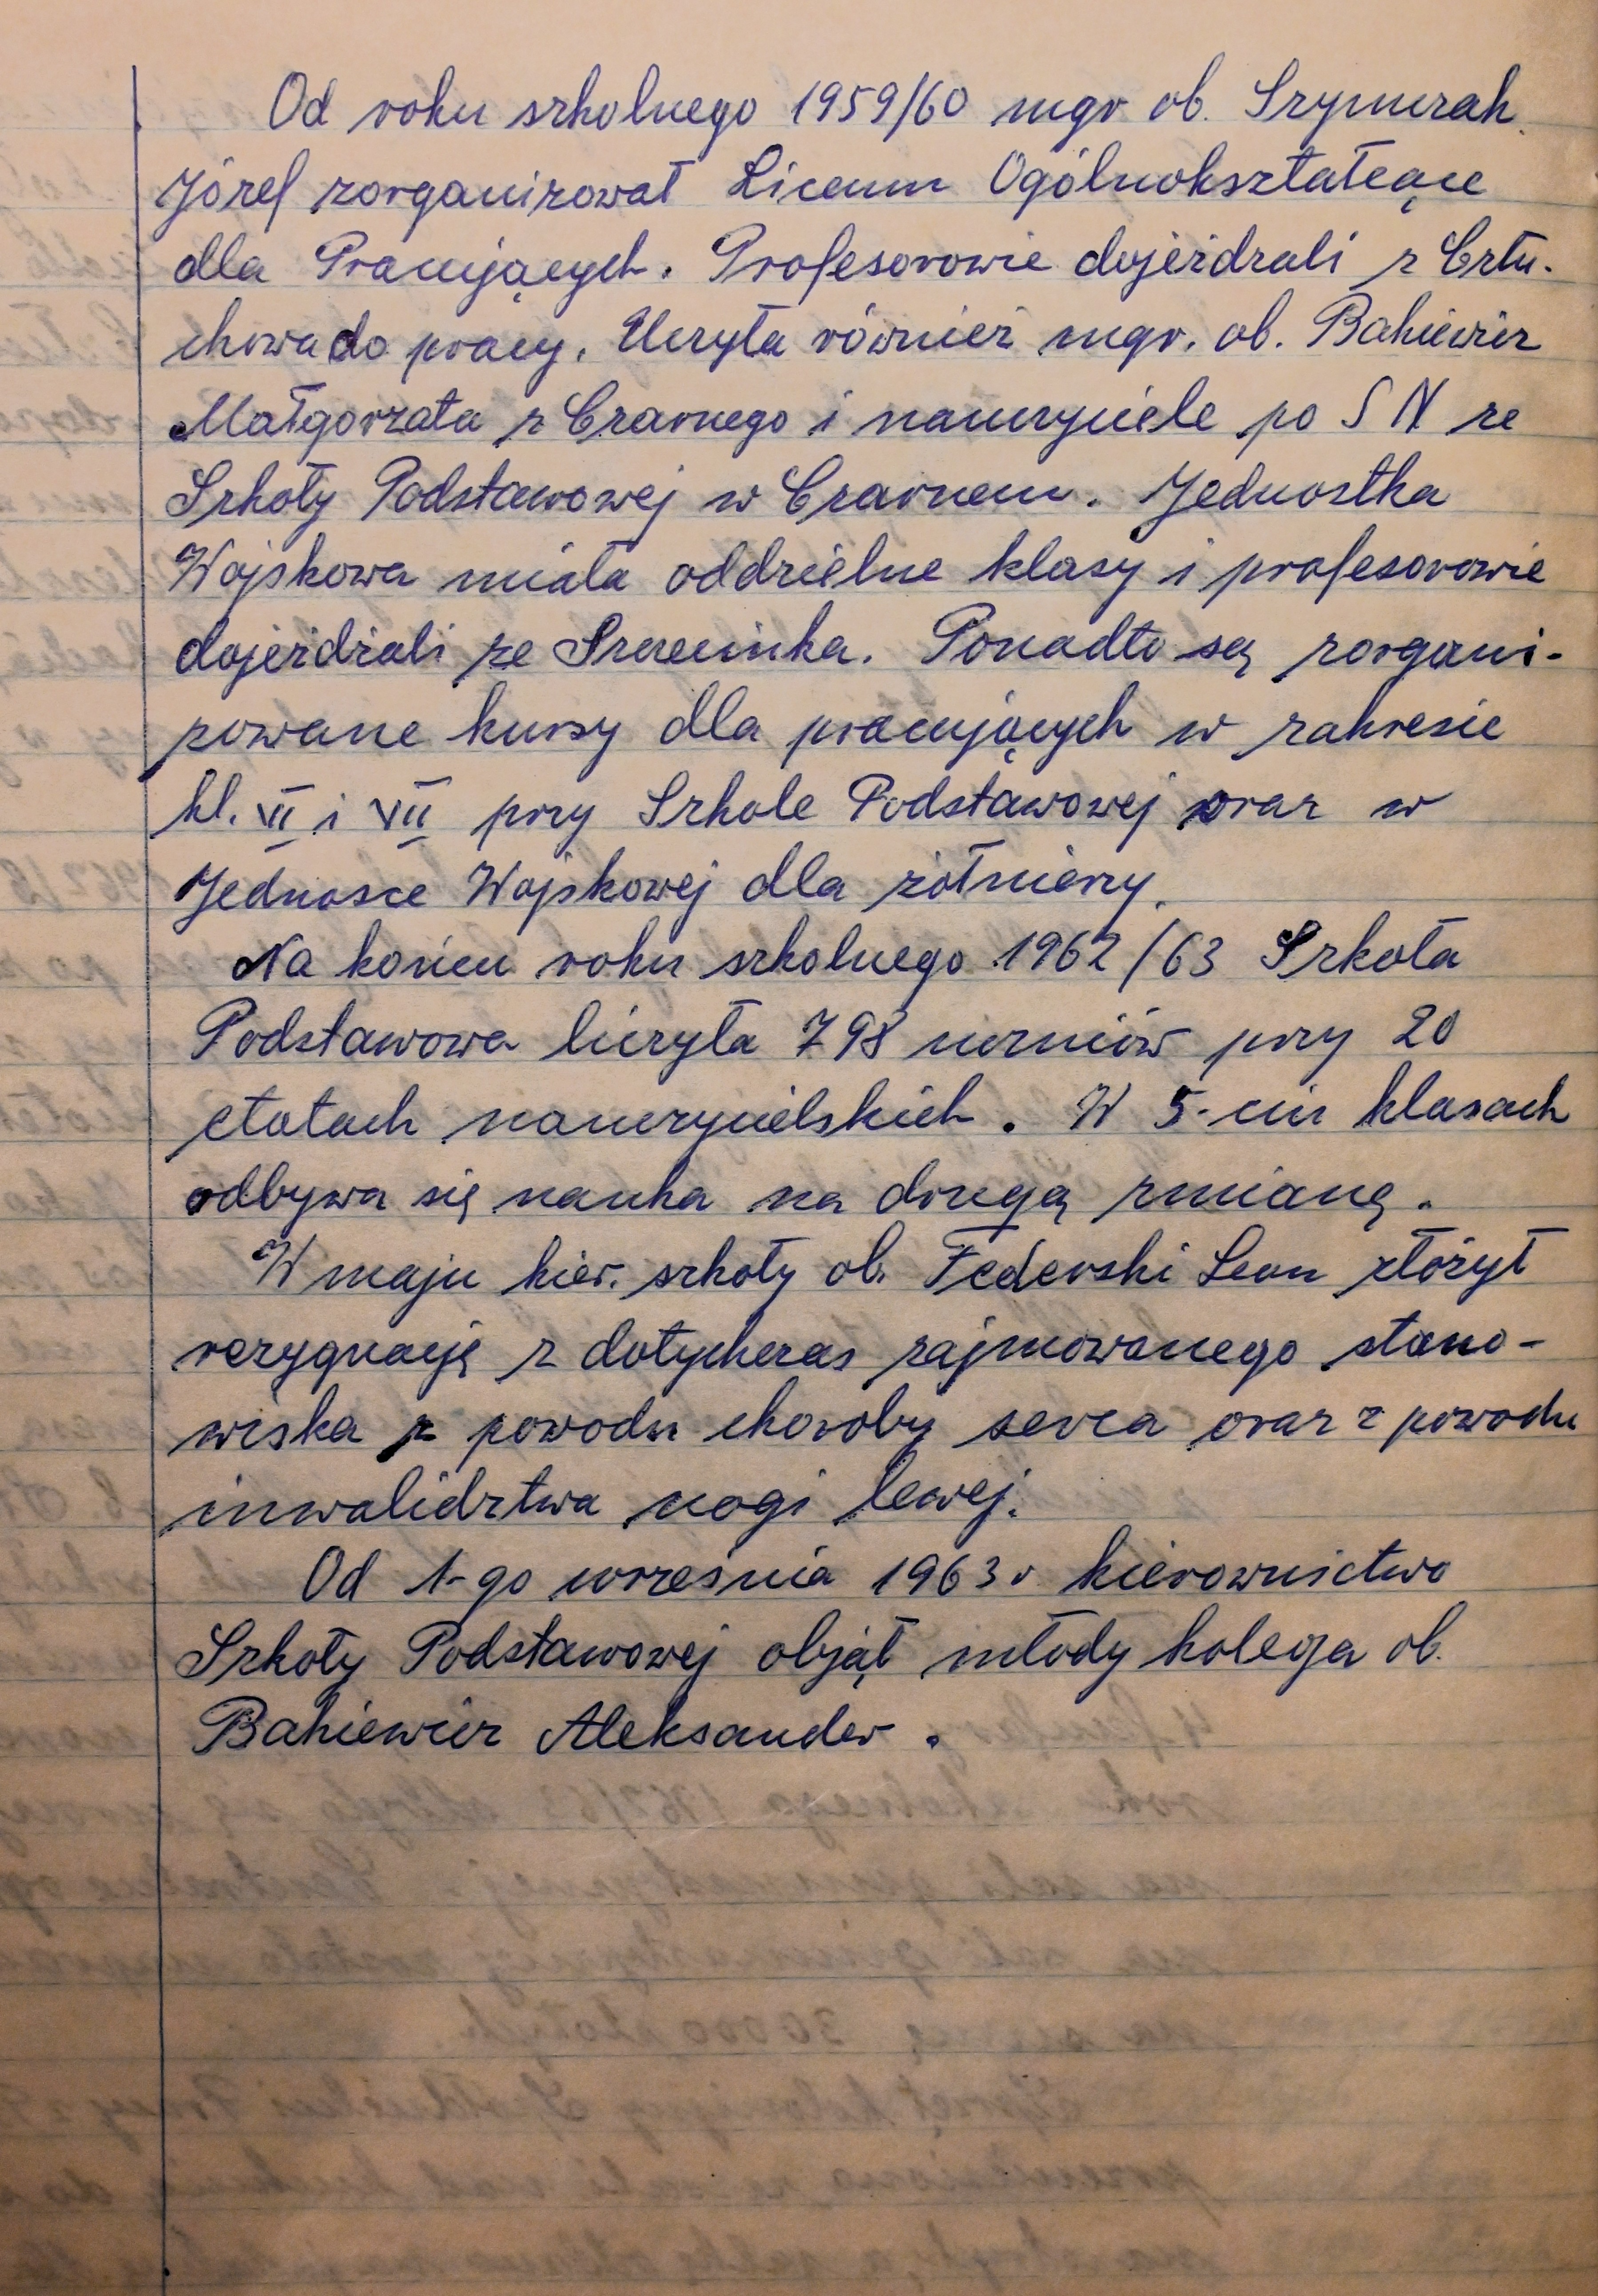 Od roku szkolnego 1959/60 mgr ob. Szymczak
Józef zorganizował Liceum Ogólnokształcące
dla Pracujących. Profesorowie dojeżdzali z Człu-
chowa do pracy. Uczyła również mgr. ob. Bakiewicz
Małgorzata z Czarnego i nauczyciele po SN ze
Szkoły Podstawowej w Czarnem. Jednostka
Wojskowa miała oddzielne klasy i profesorowie
dojeżdżali ze Szczecinka. Ponadto są zorgani-
zowane kursy dla pracujących w zakresie
kl. VI i VII przy Szkole Podstawowej oraz w
Jednosce Wojskowej dla żółnierzy.
Na końcu roku szkolnego 1962/63 Szkoła
Podstawowa liczyła 798 uczniów przy 20
etatach nauczycielskich. W 5-ciu klasach
odbywa się nauka na drugą zmianę.
W maju kier. szkoły ob. Federski Leon złożył
rezygnację z dotychczas zajmowanego stano-
wiska z powodu choroby serca oraz z powodu
inwalidztwa nogi lewej.
Od 1-go września 1963 r kierownictwo
Szkoły Podstawowej objął młody kolega ob.
Bakiewicz Aleksander.